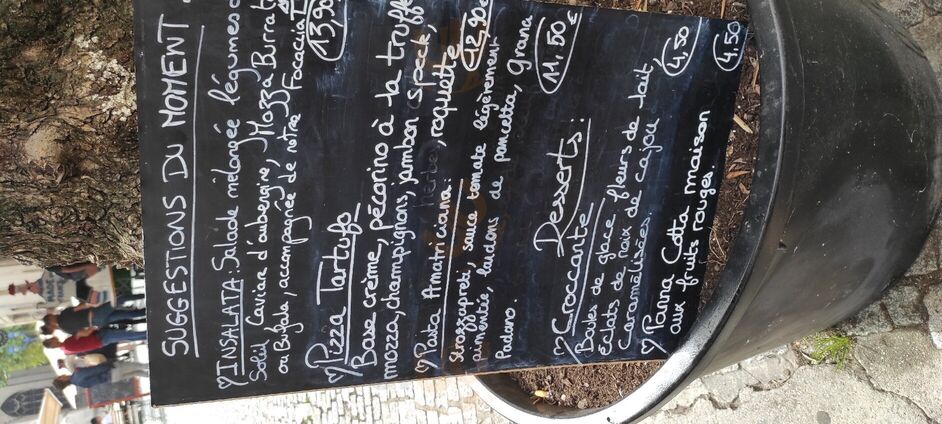 SUGGESTIONS DU MOMENT
INSALATA: Salade mélangée légumes
Soleil, Caviar d'aubergine, Mozza Burrata
ou Bufala, accompagnée de notre Focaccia
13,90
Pizza Tartufo
Base crème, pécorino à la truffe
mozza, champignons, jambon speck,
roquette
12,90€
Pasta Amatriciana:
Strozzapreti, sauce tomate légèrement
pimentée, lardons de pancetta, grana
Padano.
11,50€
Desserts:
Croccante
Boules de glace fleurs de lait,
éclats de noix de cajou
caramélisées.
4,50
Panna Cotta maison
aux fruits rouges.
4,50